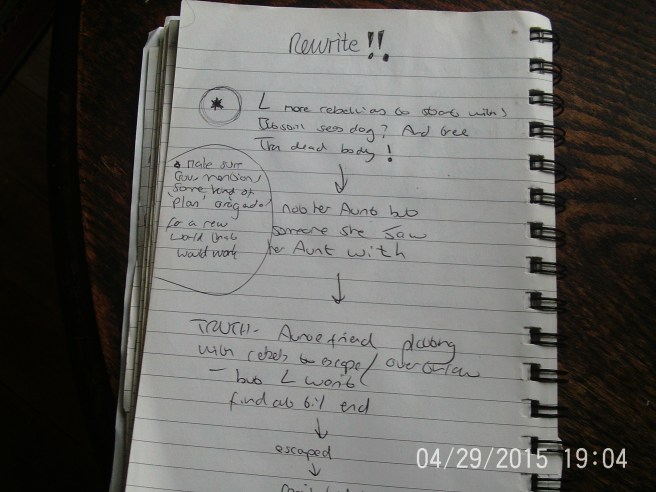 Rewrite!!
L more rebellious to start with)
sees dog? And tree
Then dead body!
• make sure
you mention
some kind of
'plan'
for a new
world that
would work
not her Aunt but
someone she saw
her Aunt with
TRUTH - Aunt & friend plotting
with rebels to escape/overthrow
- but L won't
find out til end
escaped
04/29/2015 19:04